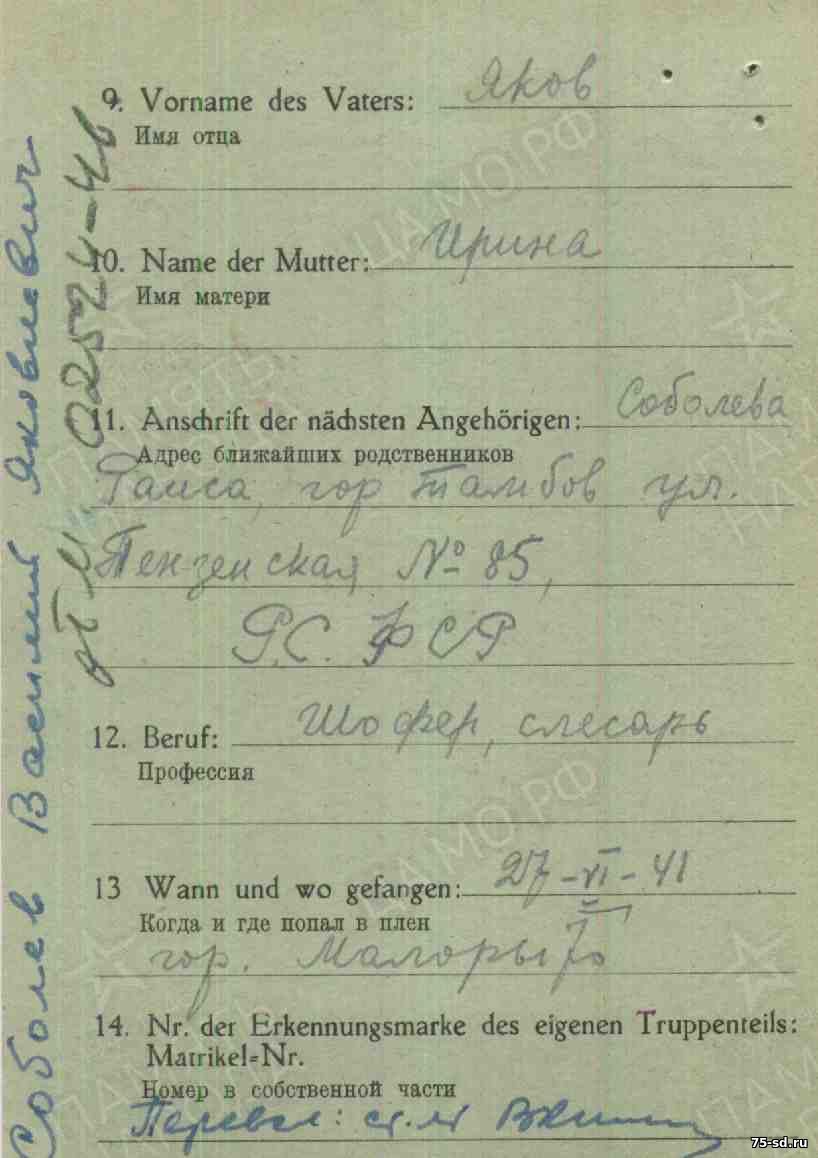 9. Vorname des Vaters: Яков
Имя отца
10. Name der Mutter: Ирина
Имя матери
11. Anschrift der nächsten Angehörigen: Соболева
Адрес ближайших родственников
Раиса, гор Тамбов ул.
Пензенская № 85,
Р.С.ФСР
12. Beruf: Шофер, слесарь
Профессия
13 Wann und wo gefangen: 27-VI-41
Когда и где попал в плен
гор. Малорыто
14. Nr. der Erkennungsmarke des eigenen Truppenteils:
Matrikel=Nr.
Номер в собственной части
Перевел:
Соболев Василий Яковлевич
ЦАМО.РФ
ПАМЯТЬ
ЦАМО.РФ
75-sd.ru